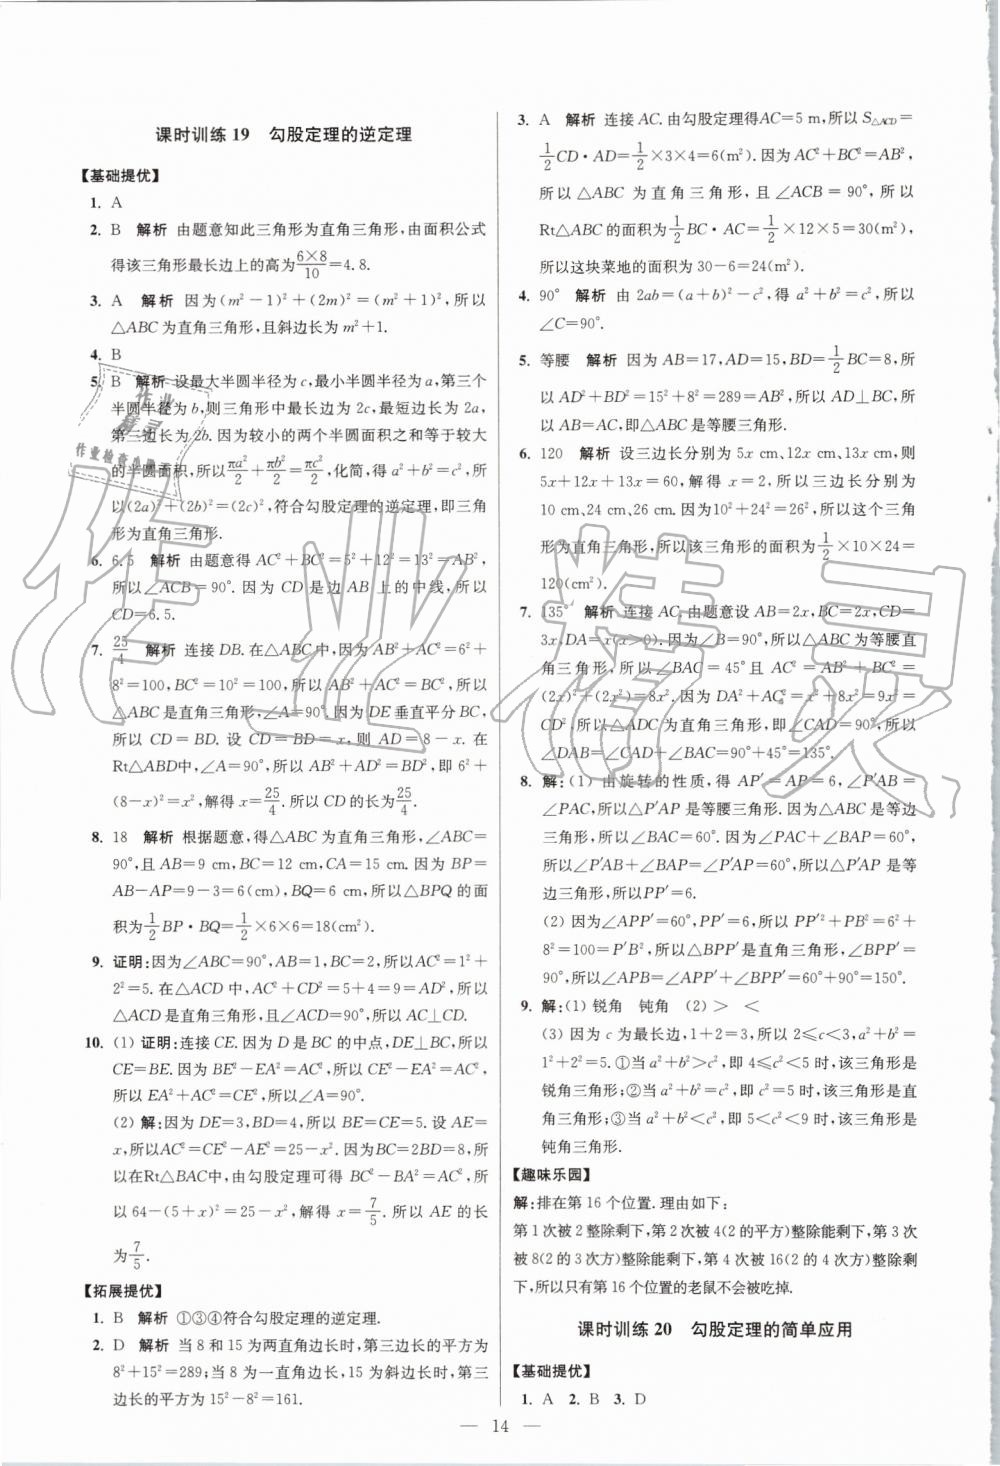 课时训练19 勾股定理的逆定理
【基础提优】
1. A
2. B 解析 由题意知此三角形为直角三角形,由面积公式
得该三角形最长边上的高为\frac{6×8}{10}=4.8.
3. A 解析 因为(m²-1)²+(2m)²=(m²+1)²,所以
△ABC为直角三角形,且斜边长为m²+1.
4. B
5. B 解析 设最大半圆半径为c,最小半圆半径为a,第三个
半圆半径为b,则三角形中最长边为2c,最短边长为2a,
第三边长为2b.因为较小的两个半圆面积之和等于较大
的半圆面积,所以\frac{πa²}{2}+\frac{πb²}{2}=\frac{πc²}{2},化简,得a²+b²=c²,所
以(2a)²+(2b)²=(2c)²,符合勾股定理的逆定理,即三角
形为直角三角形.
6. 6.5 解析 由题意得AC²+BC²=5²+12²=13²=AB²,
所以∠ACB=90°.因为CD是边AB上的中线,所以
CD=6.5.
7. \frac{25}{4} 解析 连接DB.在△ABC中,因为AB²+AC²=6²+
8²=100,BC²=10²=100,所以AB²+AC²=BC²,所以
△ABC是直角三角形,∠A=90°.因为DE垂直平分BC,
所以CD=BD.设CD=BD=x,则AD=8-x.在
Rt△ABD中,∠A=90°,所以AB²+AD²=BD²,即6²+
(8-x)²=x²,解得x=\frac{25}{4}.所以CD的长为\frac{25}{4}.
8. 18 解析 根据题意,得△ABC为直角三角形,∠ABC=
90°,且AB=9 cm,BC=12 cm,CA=15 cm.因为BP=
AB-AP=9-3=6(cm),BQ=6 cm,所以△BPQ的面
积为\frac{1}{2}BP·BQ=\frac{1}{2}×6×6=18(cm²).
9. 证明:因为∠ABC=90°,AB=1,BC=2,所以AC²=1²+
2²=5.在△ACD中,AC²+CD²=5+4=9=AD²,所以
△ACD是直角三角形,且∠ACD=90°,所以AC⊥CD.
10. (1) 证明:连接CE.因为D是BC的中点,DE⊥BC,所以
CE=BE.因为BE²-EA²=AC²,所以CE²-EA²=AC²,
所以EA²+AC²=CE²,所以∠A=90°.
(2) 解:因为DE=3,BD=4,所以BE=CE=5.设AE=
x,所以AC²=CE²-AE²=25-x².因为BC=2BD=8,所
以在Rt△BAC中,由勾股定理可得BC²-BA²=AC²,所
以64-(5+x)²=25-x²,解得x=\frac{7}{5}.所以AE的长
为\frac{7}{5}.
【拓展提优】
1. B 解析 ①③④符合勾股定理的逆定理.
2. D 解析 当8和15为两直角边长时,第三边长的平方为
8²+15²=289;当8为一直角边长,15为斜边长时,第三
边长的平方为15²-8²=161.
3. A 解析 连接AC.由勾股定理得AC=5 m,所以S△ACD=
\frac{1}{2}CD·AD=\frac{1}{2}×3×4=6(m²).因为AC²+BC²=AB²,
所以△ABC为直角三角形,且∠ACB=90°,所以
Rt△ABC的面积为\frac{1}{2}BC·AC=\frac{1}{2}×12×5=30(m²),
所以这块菜地的面积为30-6=24(m²).
4. 90° 解析 由2ab=(a+b)²-c²,得a²+b²=c²,所以
∠C=90°.
5. 等腰 解析 因为AB=17,AD=15,BD=\frac{1}{2}BC=8,所
以AD²+BD²=15²+8²=289=AB²,所以AD⊥BC,所
以AB=AC,即△ABC是等腰三角形.
6. 120 解析 设三边长分别为5x cm、12x cm、13x cm,则
5x+12x+13x=60,解得x=2,所以三边长分别为
10 cm、24 cm、26 cm.因为10²+24²=26²,所以这个三角
形为直角三角形,所以该三角形的面积为\frac{1}{2}×10×24=
120(cm²).
7. 135° 解析 连接AC.由题意设AB=2x,BC=2x,CD=
3x,DA=x(x>0).因为∠B=90°,所以△ABC为等腰直
角三角形,所以∠BAC=45°且AC²=AB²+BC²=
(2x)²+(2x)²=8x².因为DA²+AC²=x²+8x²=9x²=
CD²,所以△ADC为直角三角形,即∠CAD=90°,所以
∠DAB=∠CAD+∠BAC=90°+45°=135°.
8. 解:(1) 由旋转的性质,得AP′=AP=6,∠P′AB=
∠PAC,所以△P′AP是等腰三角形.因为△ABC是等边
三角形,所以∠BAC=60°.因为∠PAC+∠BAP=60°,
所以∠P′AB+∠BAP=∠P′AP=60°,所以△P′AP是等
边三角形,所以PP′=6.
(2) 因为∠APP′=60°,PP′=6,所以PP′²+PB²=6²+
8²=100=P′B²,所以△BPP′是直角三角形,∠BPP′=
90°,所以∠APB=∠APP′+∠BPP′=60°+90°=150°.
9. 解:(1) 锐角 钝角 (2) > <
(3) 因为c为最长边,1+2=3,所以2≤c<3,a²+b²=
1²+2²=5.①当a²+b²>c²,即4≤c²<5时,该三角形是
锐角三角形;②当a²+b²=c²,即c²=5时,该三角形是直
角三角形;③当a²+b²<c²,即5<c²<9时,该三角形是
钝角三角形.
【趣味乐园】
解:排在第16个位置.理由如下:
第1次被2整除剩下,第2次被4(2的平方)整除能剩下,第3次
被8(2的3次方)整除能剩下,第4次被16(2的4次方)整除剩
下,所以只有第16个位置的老鼠不会被吃掉.
课时训练20 勾股定理的简单应用
【基础提优】
1. A 2. B 3. D
— 14 —
作业精灵